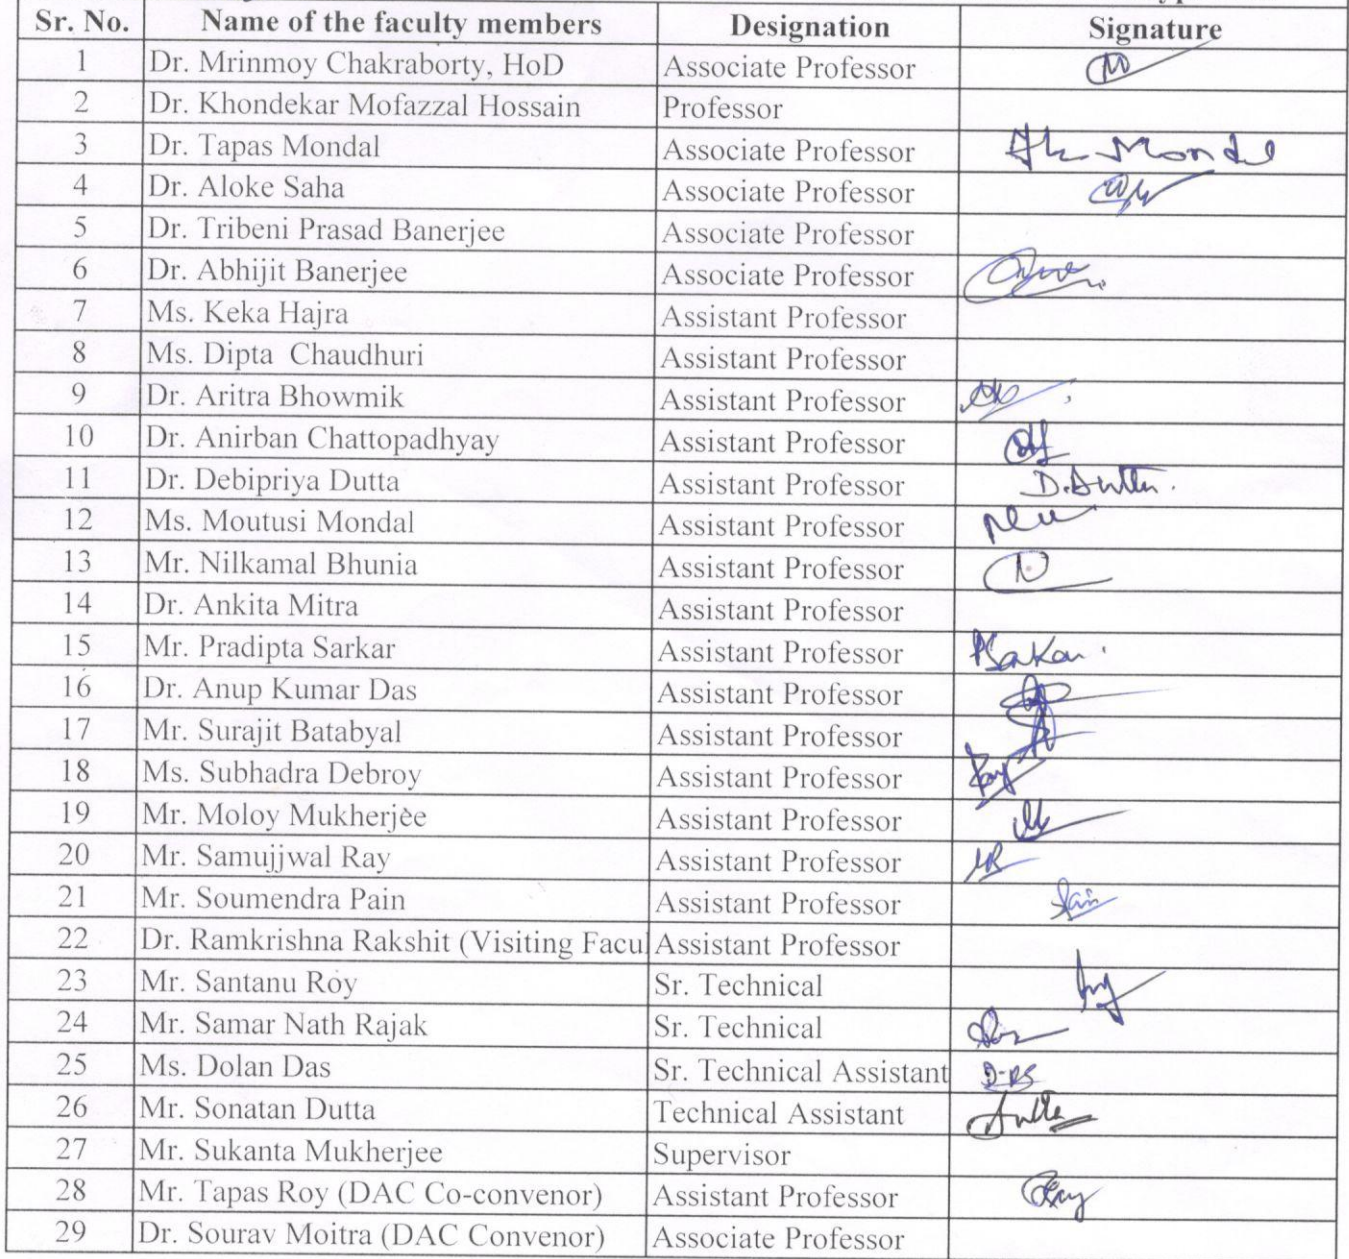 Sr. No. Name of the faculty members Designation Signature
1 Dr. Mrinmoy Chakraborty, HoD Associate Professor
2 Dr. Khondekar Mofazzal Hossain Professor
3 Dr. Tapas Mondal Associate Professor Mondal
4 Dr. Aloke Saha Associate Professor
5 Dr. Tribeni Prasad Banerjee Associate Professor
6 Dr. Abhijit Banerjee Associate Professor
7 Ms. Keka Hajra Assistant Professor
8 Ms. Dipta Chaudhuri Assistant Professor
9 Dr. Aritra Bhowmik Assistant Professor
10 Dr. Anirban Chattopadhyay Assistant Professor
11 Dr. Debipriya Dutta Assistant Professor D. Dutta.
12 Ms. Moutusi Mondal Assistant Professor
13 Mr. Nilkamal Bhunia Assistant Professor
14 Dr. Ankita Mitra Assistant Professor
15 Mr. Pradipta Sarkar Assistant Professor
16 Dr. Anup Kumar Das Assistant Professor
17 Mr. Surajit Batabyal Assistant Professor
18 Ms. Subhadra Debroy Assistant Professor
19 Mr. Moloy Mukherjee Assistant Professor
20 Mr. Samujjwal Ray Assistant Professor
21 Mr. Soumendra Pain Assistant Professor
22 Dr. Ramkrishna Rakshit (Visiting Facul Assistant Professor
23 Mr. Santanu Roy Sr. Technical
24 Mr. Samar Nath Rajak Sr. Technical
25 Ms. Dolan Das Sr. Technical Assistant
26 Mr. Sonatan Dutta Technical Assistant
27 Mr. Sukanta Mukherjee Supervisor
28 Mr. Tapas Roy (DAC Co-convenor) Assistant Professor
29 Dr. Sourav Moitra (DAC Convenor) Associate Professor